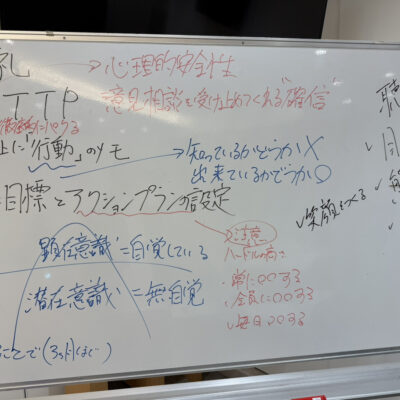 礼 → 心理的安全性
TTP 意見相談を受け止めてくれる"確信"
徹底的にパクる
「行動」のメモ → 知っているかどうか×
出来ているかどうか○
目標とアクションプランの設定
✓笑顔をつくる
顕在意識=自覚している
注意
ハードルの高さ
・常に○○する
潜在意識=無自覚
・全員に○○する
・毎日○○する
ことで(3ヵ月ほど)
聴